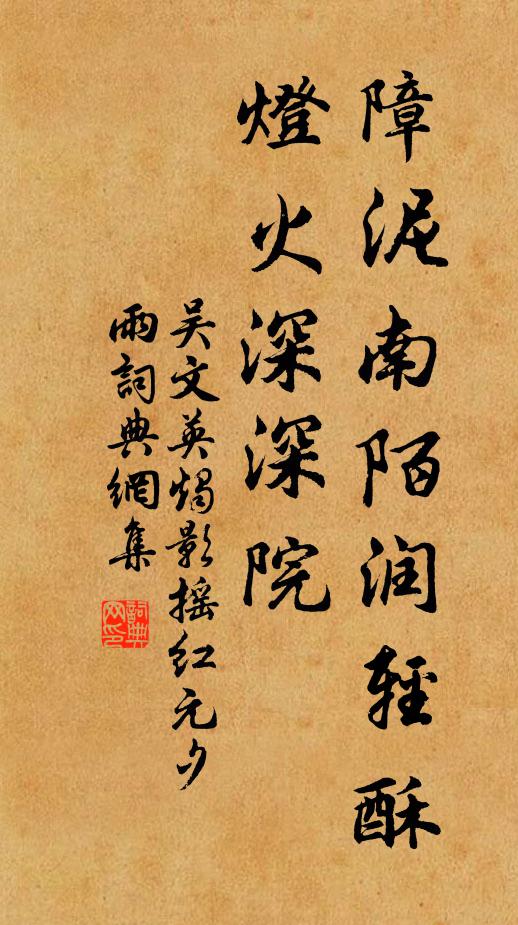 障泥南陌润轻酥
燈火深深院
吴文英燭影摇红元夕
雨詞典網集
詞典网印